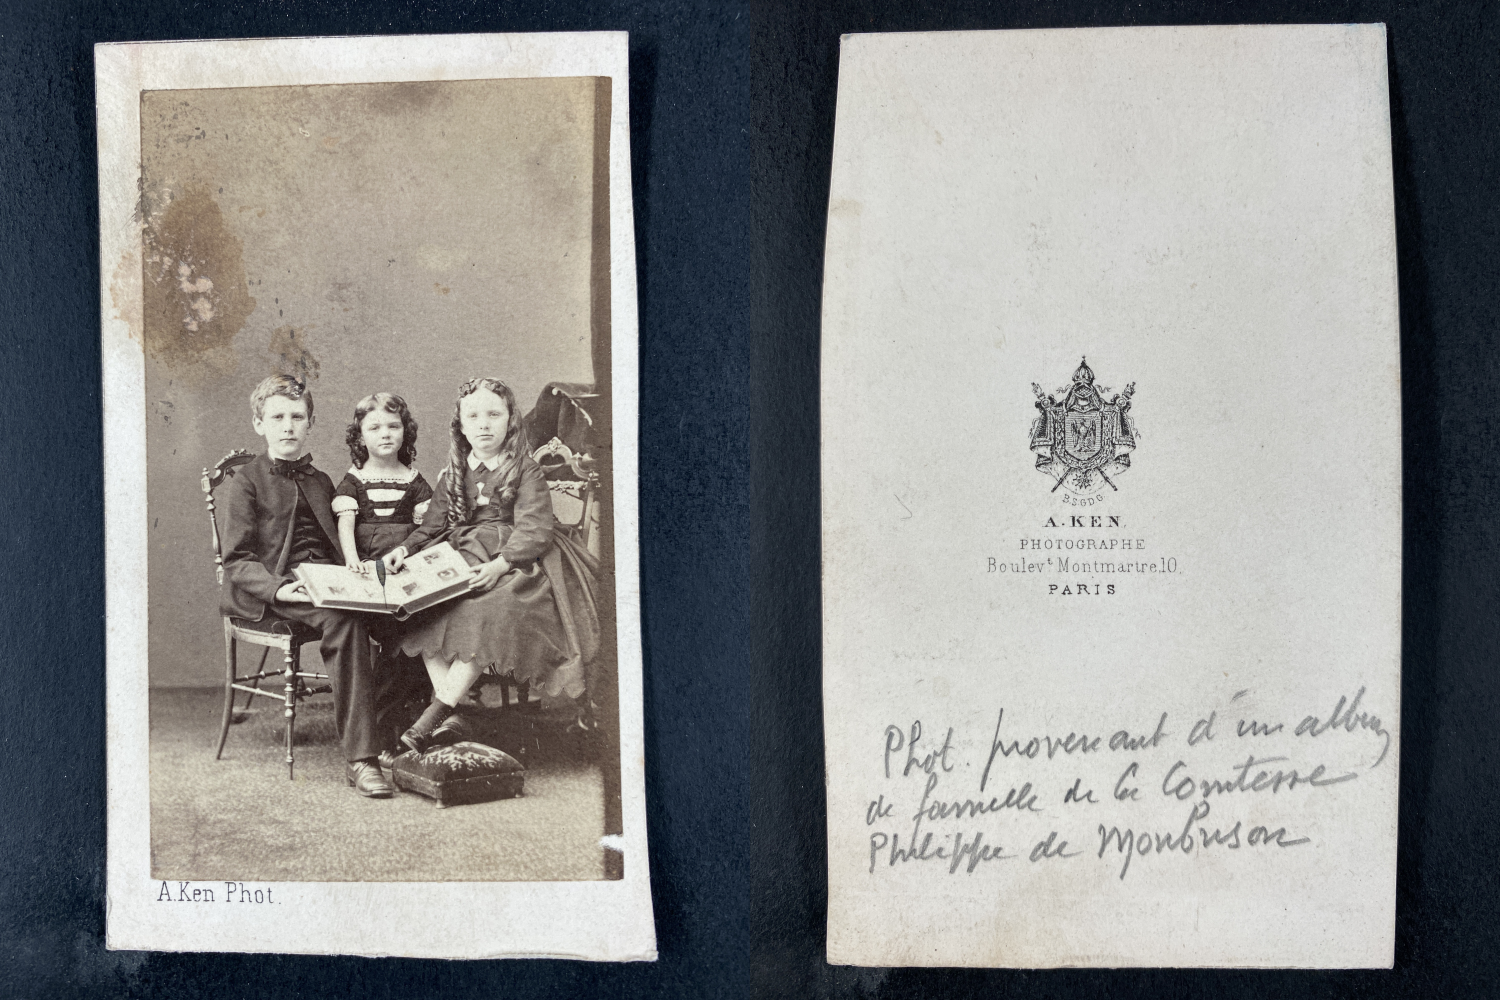 A.Ken Phot.
B.S.G.D.G.
A. KEN
PHOTOGRAPHE
Boulevt Montmartre, 10.
PARIS
Phot. provenant d'un album
de famille de la Comtesse
Philippe de Montbrison